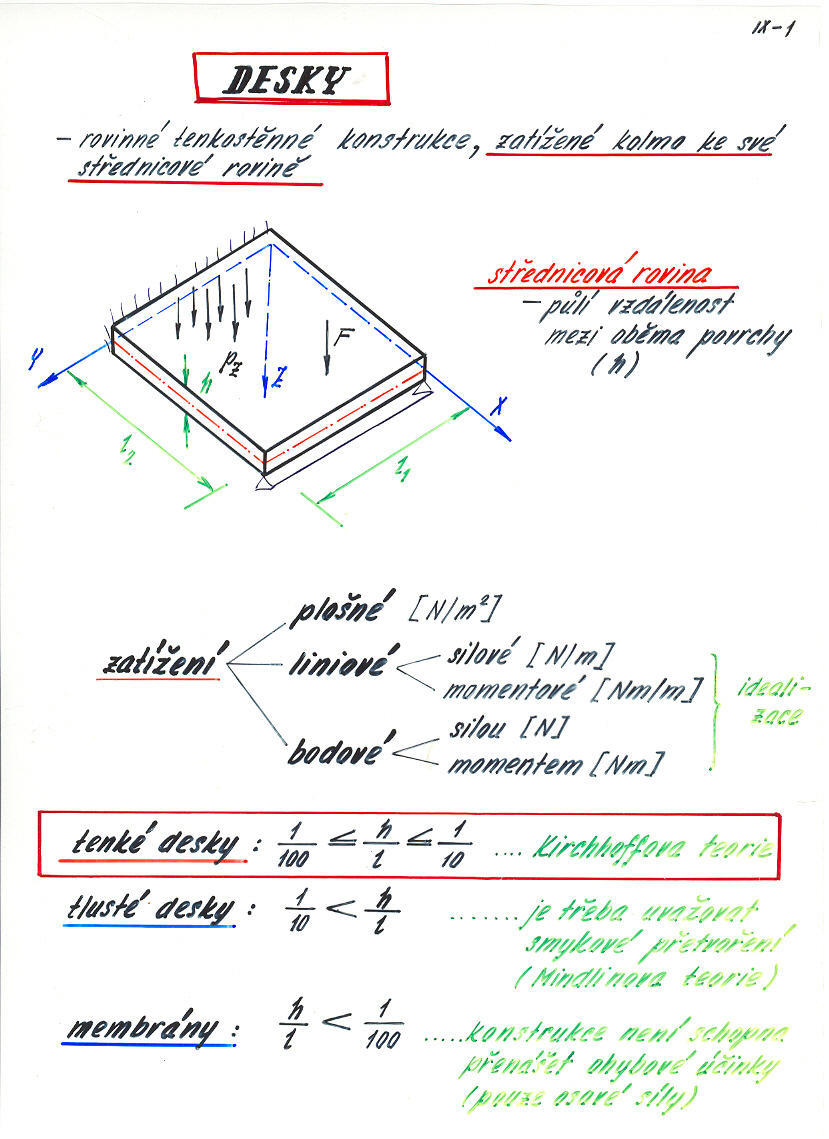 IX-1
DESKY
- rovinné tenkostěnné konstrukce, zatížené kolmo ke své
střednicové rovině
střednicová rovina
- půlí vzdálenost
mezi oběma povrchy
(h)
F
y
pz
h
z
x
l2
l1
plošné [N/m²]
zatížení
liniové
silové [N/m]
momentové [Nm/m]
ideali-
zace
bodové
silou [N]
momentem [Nm]
tenké desky : 1/100 ≤ h/l ≤ 1/10 .... Kirchhoffova teorie
tlusté desky : 1/10 < h/l ....... je třeba uvažovat
smykové přetvoření
(Mindlinova teorie)
membrány : h/l < 1/100 ..... konstrukce není schopna
přenášet ohybové účinky
(pouze osové síly)